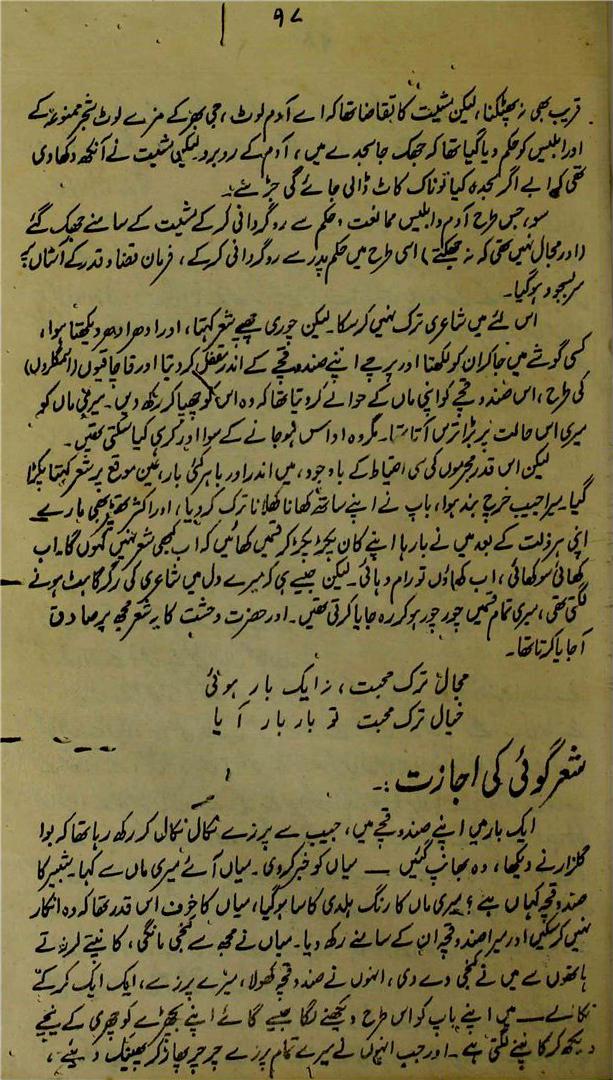 ۹۷
قریب بھی نہ پھٹکنا، لیکن مشیت کا تقاضا تھا کہ اے آدم لوٹ، جی بھر کے مزے لوٹ شجرِ ممنوعہ کے
اور ابلیس کو حکم دیا گیا تھا کہ جھک جا سجدے میں، آدم کے روبرو لیکن مشیت نے آنکھ دکھا دی
تھی کہ ابے اگر سجدہ کیا تو ناک کاٹ ڈالی جائے گی جڑ سے۔
سو، جس طرح آدم و ابلیس ممانعت و حکم سے روگردانی کر کے مشیت کے سامنے جھک گئے
(اور مجال نہیں تھی کہ نہ جھکتے) اسی طرح میں حکمِ پدر سے روگردانی کر کے، فرمانِ قضا و قدر کے آستاں پر
سربسجود ہو گیا۔
اس لئے میں شاعری ترک نہیں کر سکا۔ لیکن چوری چھپے شعر کہتا، اور ادھر ادھر دیکھتا ہوا،
کسی گوشے میں جا کر ان کو لکھتا اور پرچے اپنے صندوقچے کے اندر مقفل کر دیتا اور قاچاقیوں (اسمگلروں)
کی طرح، اس صندوقچے کو اپنی ماں کے حوالے کر دیتا تھا کہ وہ اس کو چھپا کر رکھ دیں۔ میری ماں کو
میری اس حالت پر بڑا ترس آتا تھا۔ مگر وہ اداس ہو جانے کے سوا اور کر ہی کیا سکتی تھیں۔
لیکن اس قدر مجرموں کی سی احتیاط کے باوجود، میں اندر اور باہر کئی بار، عین موقع پر شعر کہتا پکڑا
گیا۔ میرا جیب خرچ بند ہوا، باپ نے اپنے ساتھ کھانا کھلانا ترک کر دیا، اور اکثر تھپڑ بھی مارے
اپنی ہر ذلت کے بعد میں نے بارہا اپنے کان پکڑ پکڑ کر قسمیں کھائیں کہ اب کبھی شعر نہیں کہوں گا۔ اب
کھائی سو کھائی، اب کھاؤں تو رام دہائی۔ لیکن جیسے ہی کہ میرے دل میں شاعری کی گرگراہٹ ہونے
لگتی تھی، میری تمام قسمیں چور چور ہو کر رہ جایا کرتی تھیں۔ اور حضرت وحشت کا یہ شعر مجھ پر صادق
آ جایا کرتا تھا۔
مجالِ ترکِ محبت، نہ ایک بار ہوئی
خیالِ ترکِ محبت تو بار بار آیا
شعر گوئی کی اجازت :۔
ایک بار میں اپنے صندوقچے میں، جیب سے پرزے نکال نکال کر رکھ رہا تھا کہ بوا
گلزار نے دیکھا، وہ بھانپ گئیں — میاں کو خبر کر دی۔ میاں آئے میری ماں سے کہا۔ شبیر کا
صندوقچہ کہاں ہے؟ میری ماں کا رنگ ہلدی کا سا ہو گیا، میاں کا خوف اس قدر تھا کہ وہ انکار
نہیں کر سکیں اور میرا صندوقچہ ان کے سامنے رکھ دیا۔ میاں نے مجھ سے کنجی مانگی، کانپتے لرزتے
ہاتھوں سے میں نے کنجی دے دی، انہوں نے صندوقچہ کھولا، میرے پرزے، ایک ایک کر کے
نکالے — میں اپنے باپ کو اس طرح دیکھنے لگا جیسے گائے اپنے بچھڑے کو چھری کے نیچے
دیکھ کر کانپنے لگتی ہے۔ اور جب انہوں نے میرے تمام پرزے چر چر پھاڑ کر پھینک دیئے،